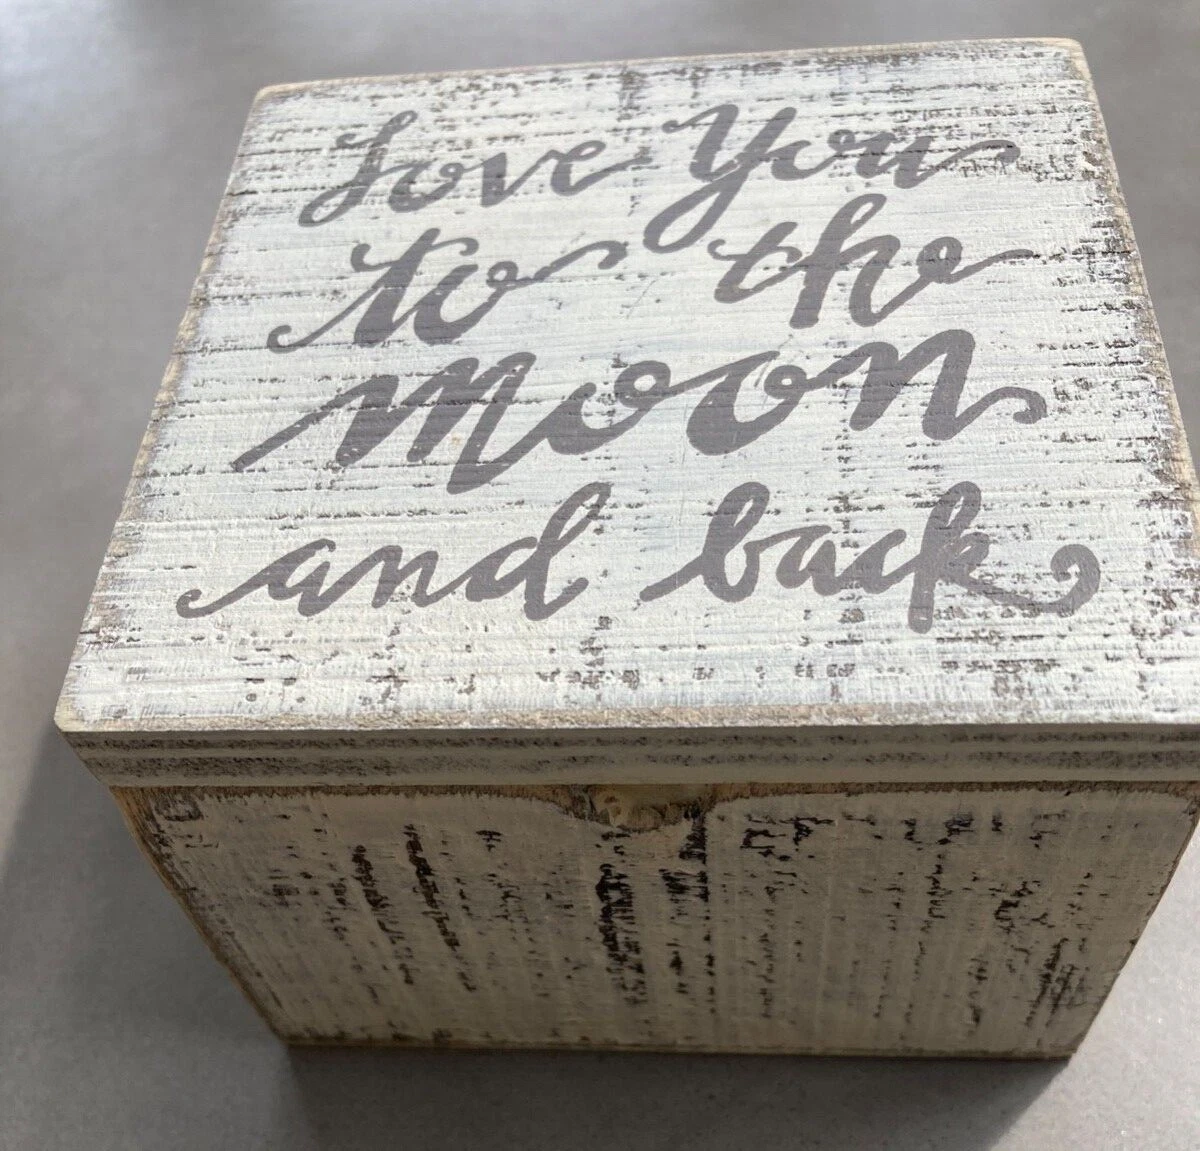 Love You
to the
Moon
and back